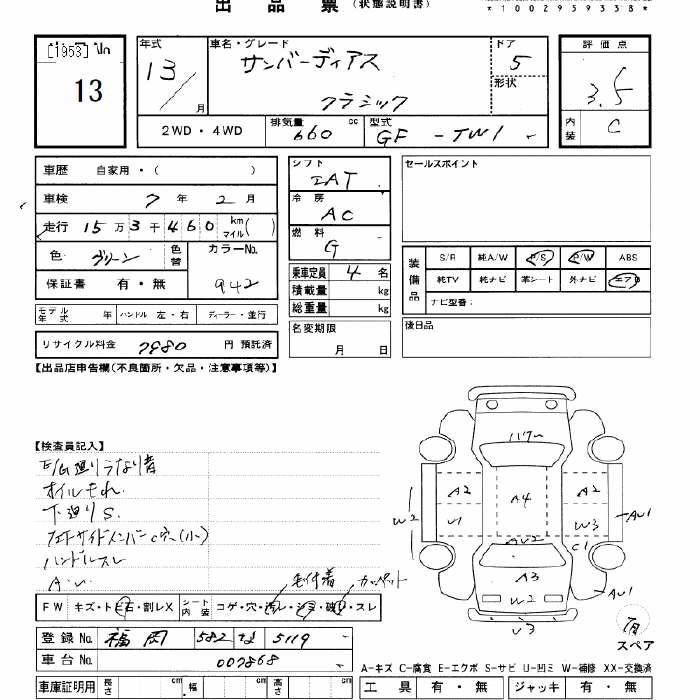 出品票 (状態説明書)
*1002959338*
[1953] No
13
年式 13/ 月
車名・グレード サンバーディアス クラシック
ドア 5
形状
評価点 3.5
内装 C
2WD・4WD
排気量 660 cc
型式 GF-TW1
車歴 自家用・( )
車検 7年 2月
走行 15万3千460 km マイル( )
色 グリーン 色替
カラーNo. 942
保証書 有・無
シフト IAT
冷房 AC
燃料 G
乗車定員 4名
積載量 kg
総重量 kg
名変期限 月 日
セールスポイント
装備品 S/R 純A/W P/S P/W ABS
純TV 純ナビ 革シート 外ナビ エアB
ナビ型番:
後日品
モデル年式 年 ハンドル 左・右 ディーラー・並行
リサイクル料金 7980 円 預託済
【出品店申告欄(不良箇所・欠品・注意事項等)】
【検査員記入】
E/G廻りうなり音
オイルもれ
下廻りS.
フロントサイドメンバーc穴(小)
ハンドルスレ
A・U
毛付着 カーペット
FW キズ・トビ石・割レX シート内装 コゲ・穴・汚レ・シミ・破レ・スレ
登録No. 福岡 582 な 5119
車台No. 007868
車庫証明用 長さ cm 幅 cm 高さ cm
バワー
A2 A4 A2
W2 U1 W3 AU1
AU2 C1
A3
W2 AU1
U3
有
スペア
A-キズ C-腐食 E-エクボ S-サビ U-凹ミ W-補修 XX-交換済
工具 有・無 ジャッキ 有・無